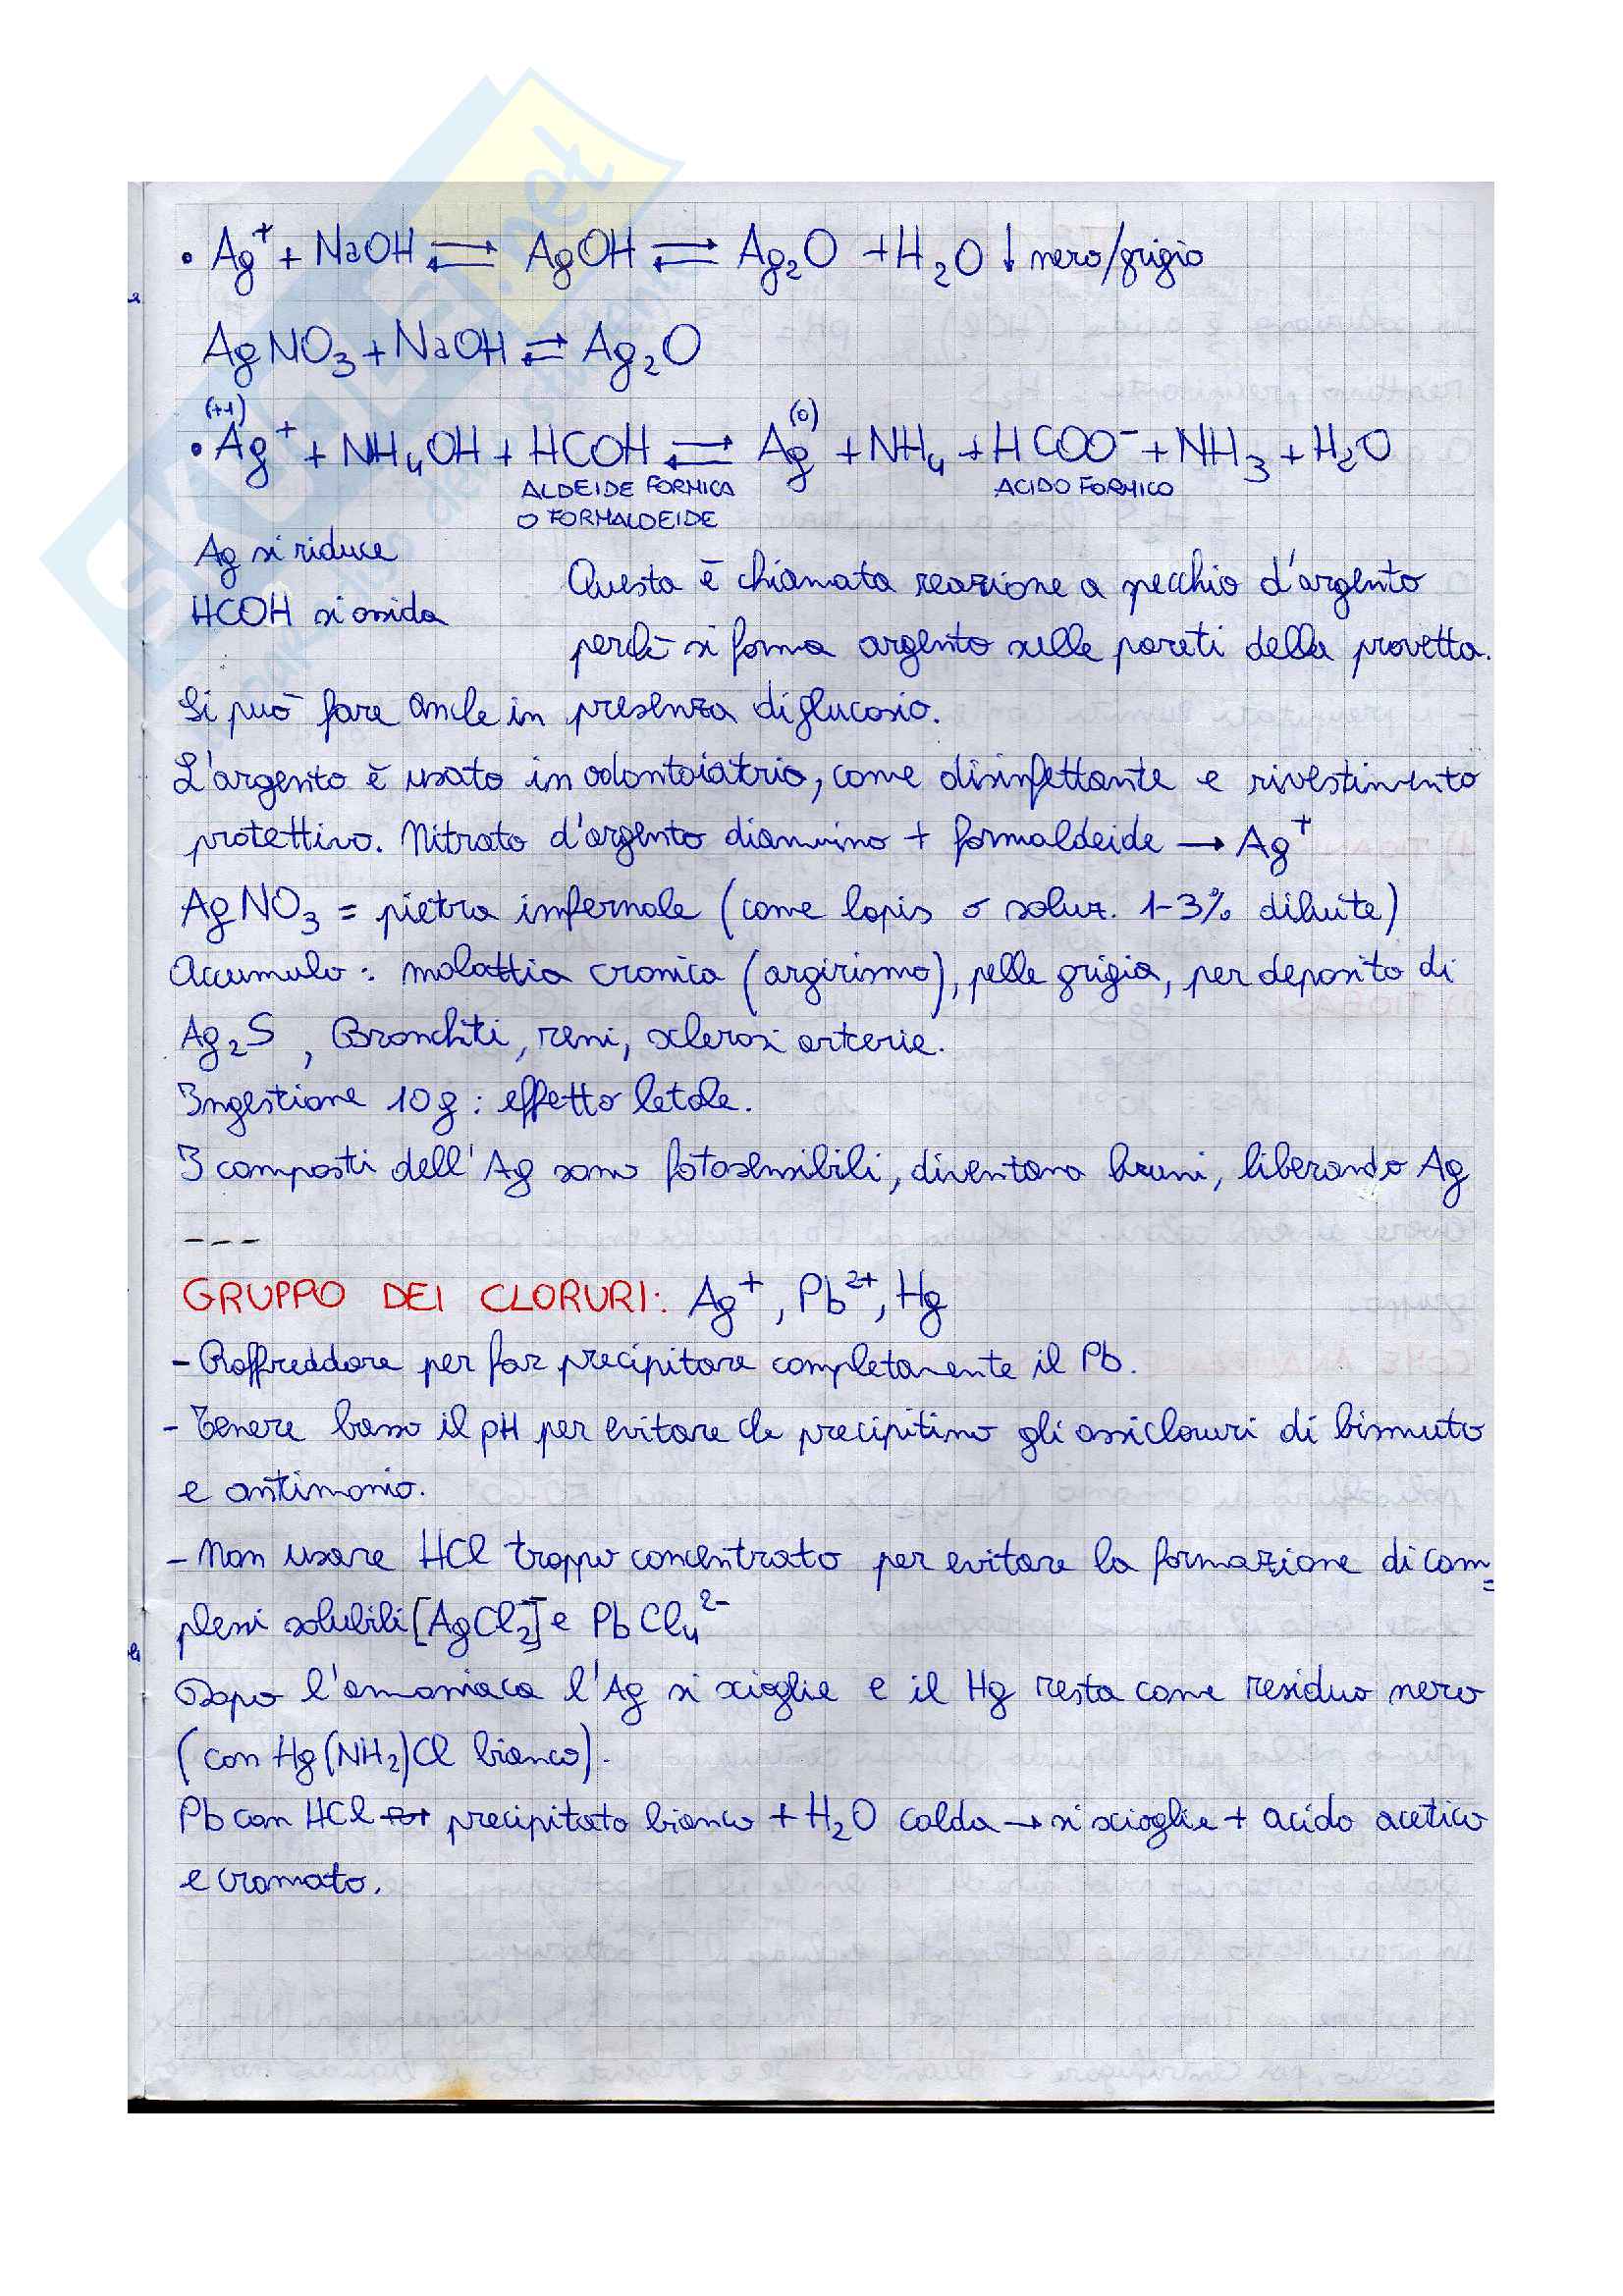 • Ag⁺ + NaOH ⇌ AgOH ⇌ Ag₂O + H₂O ↓ nero/grigio
AgNO₃ + NaOH ⇌ Ag₂O
(+1) (0)
• Ag⁺ + NH₄OH + HCOH ⇌ Ag + NH₄ + HCOO⁻ + NH₃ + H₂O
ALDEIDE FORMICA ACIDO FORMICO
O FORMALDEIDE
Ag si riduce
HCOH si ossida
Questa è chiamata reazione a specchio d'argento
perchè si forma argento sulle pareti della provetta.
Si può fare anche in presenza di glucosio.
L'argento è usato in odontoiatria, come disinfettante e rivestimento
protettivo. Nitrato d'argento diammino + formaldeide → Ag⁺
AgNO₃ = pietra infernale (come lapis o soluz. 1-3% diluite)
Accumulo: malattia cronica (argirismo), pelle grigia, per deposito di
Ag₂S, Bronchiti, reni, sclerosi arterie.
Ingestione 10g: effetto letale.
I composti dell'Ag sono fotosensibili, diventano bruni, liberando Ag
---
GRUPPO DEI CLORURI: Ag⁺, Pb²⁺, Hg
- Raffreddare per far precipitare completamente il Pb.
- Tenere basso il pH per evitare che precipitino gli ossicloruri di bismuto
e antimonio.
- Non usare HCl troppo concentrato per evitare la formazione di com=
plessi solubili [AgCl₂⁻] e PbCl₄²⁻
Dopo l'ammoniaca l'Ag si scioglie e il Hg resta come residuo nero
(con Hg(NH₂)Cl bianco).
Pb con HCl precipitato bianco + H₂O calda → si scioglie + acido acetico
e cromato.